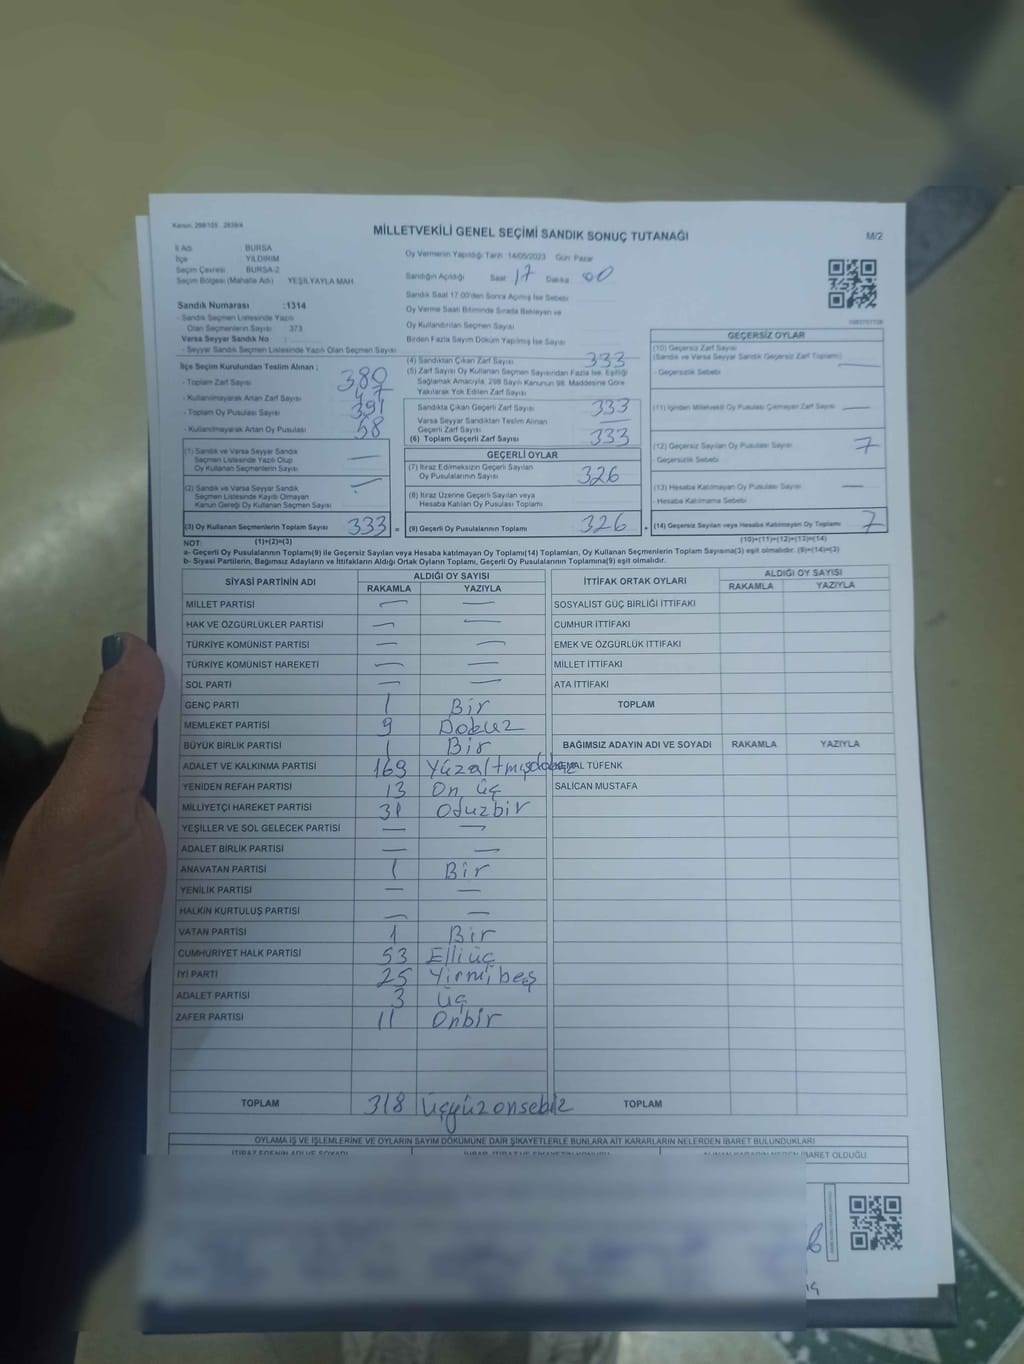 Kanun: 298/105 , 2839/4
MİLLETVEKİLİ GENEL SEÇİMİ SANDIK SONUÇ TUTANAĞI
M/2
İl Adı BURSA
İlçe YILDIRIM
Seçim Çevresi BURSA-2
Seçim Bölgesi (Mahalle Adı) YEŞİLYAYLA MAH.
Sandık Numarası :1314
- Sandık Seçmen Listesinde Yazılı
Olan Seçmenlerin Sayısı : 373
Varsa Seyyar Sandık No :
- Seyyar Sandık Seçmen Listesinde Yazılı Olan Seçmen Sayısı
İlçe Seçim Kurulundan Teslim Alınan ;
- Toplam Zarf Sayısı 380
- Kullanılmayarak Artan Zarf Sayısı 47
- Toplam Oy Pusulası Sayısı 391
- Kullanılmayarak Artan Oy Pusulası 58
(1) Sandık ve Varsa Seyyar Sandık
Seçmen Listesinde Yazılı Olup
Oy Kullanan Seçmenlerin Sayısı —
(2) Sandık ve Varsa Seyyar Sandık
Seçmen Listesinde Kayıtlı Olmayan
Kanun Gereği Oy Kullanan Seçmen Sayısı —
(3) Oy Kullanan Seçmenlerin Toplam Sayısı 333 =
Oy Vermenin Yapıldığı Tarih 14/05/2023 Gün: Pazar
Sandığın Açıldığı Saat 17 Dakika 00
Sandık Saat 17:00'den Sonra Açılmış İse Sebebi
Oy Verme Saati Bitiminde Sırada Bekleyen ve
Oy Kullandırılan Seçmen Sayısı
Birden Fazla Sayım Döküm Yapılmış İse Sayısı
(4) Sandıktan Çıkan Zarf Sayısı 333
(5) Zarf Sayısı Oy Kullanan Seçmen Sayısından Fazla İse, Eşitliği
Sağlamak Amacıyla, 298 Sayılı Kanunun 98. Maddesine Göre
Yakılarak Yok Edilen Zarf Sayısı
Sandıkta Çıkan Geçerli Zarf Sayısı 333
Varsa Seyyar Sandıktan Teslim Alınan
Geçerli Zarf Sayısı —
(6) Toplam Geçerli Zarf Sayısı 333
GEÇERLİ OYLAR
(7) İtiraz Edilmeksizin Geçerli Sayılan
Oy Pusulalarının Sayısı 326
(8) İtiraz Üzerine Geçerli Sayılan veya
Hesaba Katılan Oy Pusulası Toplamı
(9) Geçerli Oy Pusulalarının Toplamı 326 +
GEÇERSİZ OYLAR
(10) Geçersiz Zarf Sayısı
(Sandık ve Varsa Seyyar Sandık Geçersiz Zarf Toplamı) —
- Geçersizlik Sebebi
(11) İçinden Milletvekili Oy Pusulası Çıkmayan Zarf Sayısı —
(12) Geçersiz Sayılan Oy Pusulası Sayısı 7
- Geçersizlik Sebebi
(13) Hesaba Katılmayan Oy Pusulası Sayısı —
- Hesaba Katılmama Sebebi
(14) Geçersiz Sayılan veya Hesaba Katılmayan Oy Toplamı 7
NOT: (1)+(2)=(3) (10)+(11)+(12)+(13)=(14)
a- Geçerli Oy Pusulalarının Toplamı(9) ile Geçersiz Sayılan veya Hesaba katılmayan Oy Toplamı(14) Toplamları, Oy Kullanan Seçmenlerin Toplam Sayısına(3) eşit olmalıdır. (9)+(14)=(3)
b- Siyasi Partilerin, Bağımsız Adayların ve İttifakların Aldığı Ortak Oyların Toplamı, Geçerli Oy Pusulalarının Toplamına(9) eşit olmalıdır.
SİYASİ PARTİNİN ADI ALDIĞI OY SAYISI
RAKAMLA YAZIYLA
MİLLET PARTİSİ — —
HAK VE ÖZGÜRLÜKLER PARTİSİ — —
TÜRKİYE KOMÜNİST PARTİSİ — —
TÜRKİYE KOMÜNİST HAREKETİ — —
SOL PARTİ — —
GENÇ PARTİ 1 Bir
MEMLEKET PARTİSİ 9 Dokuz
BÜYÜK BİRLİK PARTİSİ 1 Bir
ADALET VE KALKINMA PARTİSİ 169 Yüzaltmışdokuz
YENİDEN REFAH PARTİSİ 13 On üç
MİLLİYETÇİ HAREKET PARTİSİ 31 Oduzbir
YEŞİLLER VE SOL GELECEK PARTİSİ — —
ADALET BİRLİK PARTİSİ — —
ANAVATAN PARTİSİ 1 Bir
YENİLİK PARTİSİ — —
HALKIN KURTULUŞ PARTİSİ — —
VATAN PARTİSİ 1 Bir
CUMHURİYET HALK PARTİSİ 53 Elliüç
İYİ PARTİ 25 Yirmibeş
ADALET PARTİSİ 3 üç
ZAFER PARTİSİ 11 Onbir
TOPLAM 318 üçyüzonsekiz
İTTİFAK ORTAK OYLARI ALDIĞI OY SAYISI
RAKAMLA YAZIYLA
SOSYALİST GÜÇ BİRLİĞİ İTTİFAKI
CUMHUR İTTİFAKI
EMEK VE ÖZGÜRLÜK İTTİFAKI
MİLLET İTTİFAKI
ATA İTTİFAKI
TOPLAM
BAĞIMSIZ ADAYIN ADI VE SOYADI RAKAMLA YAZIYLA
TÜFENK
SALİCAN MUSTAFA
TOPLAM
OYLAMA İŞ VE İŞLEMLERİNE VE OYLARIN SAYIM DÖKÜMÜNE DAİR ŞİKAYETLERLE BUNLARA AİT KARARLARIN NELERDEN İBARET BULUNDUKLARI